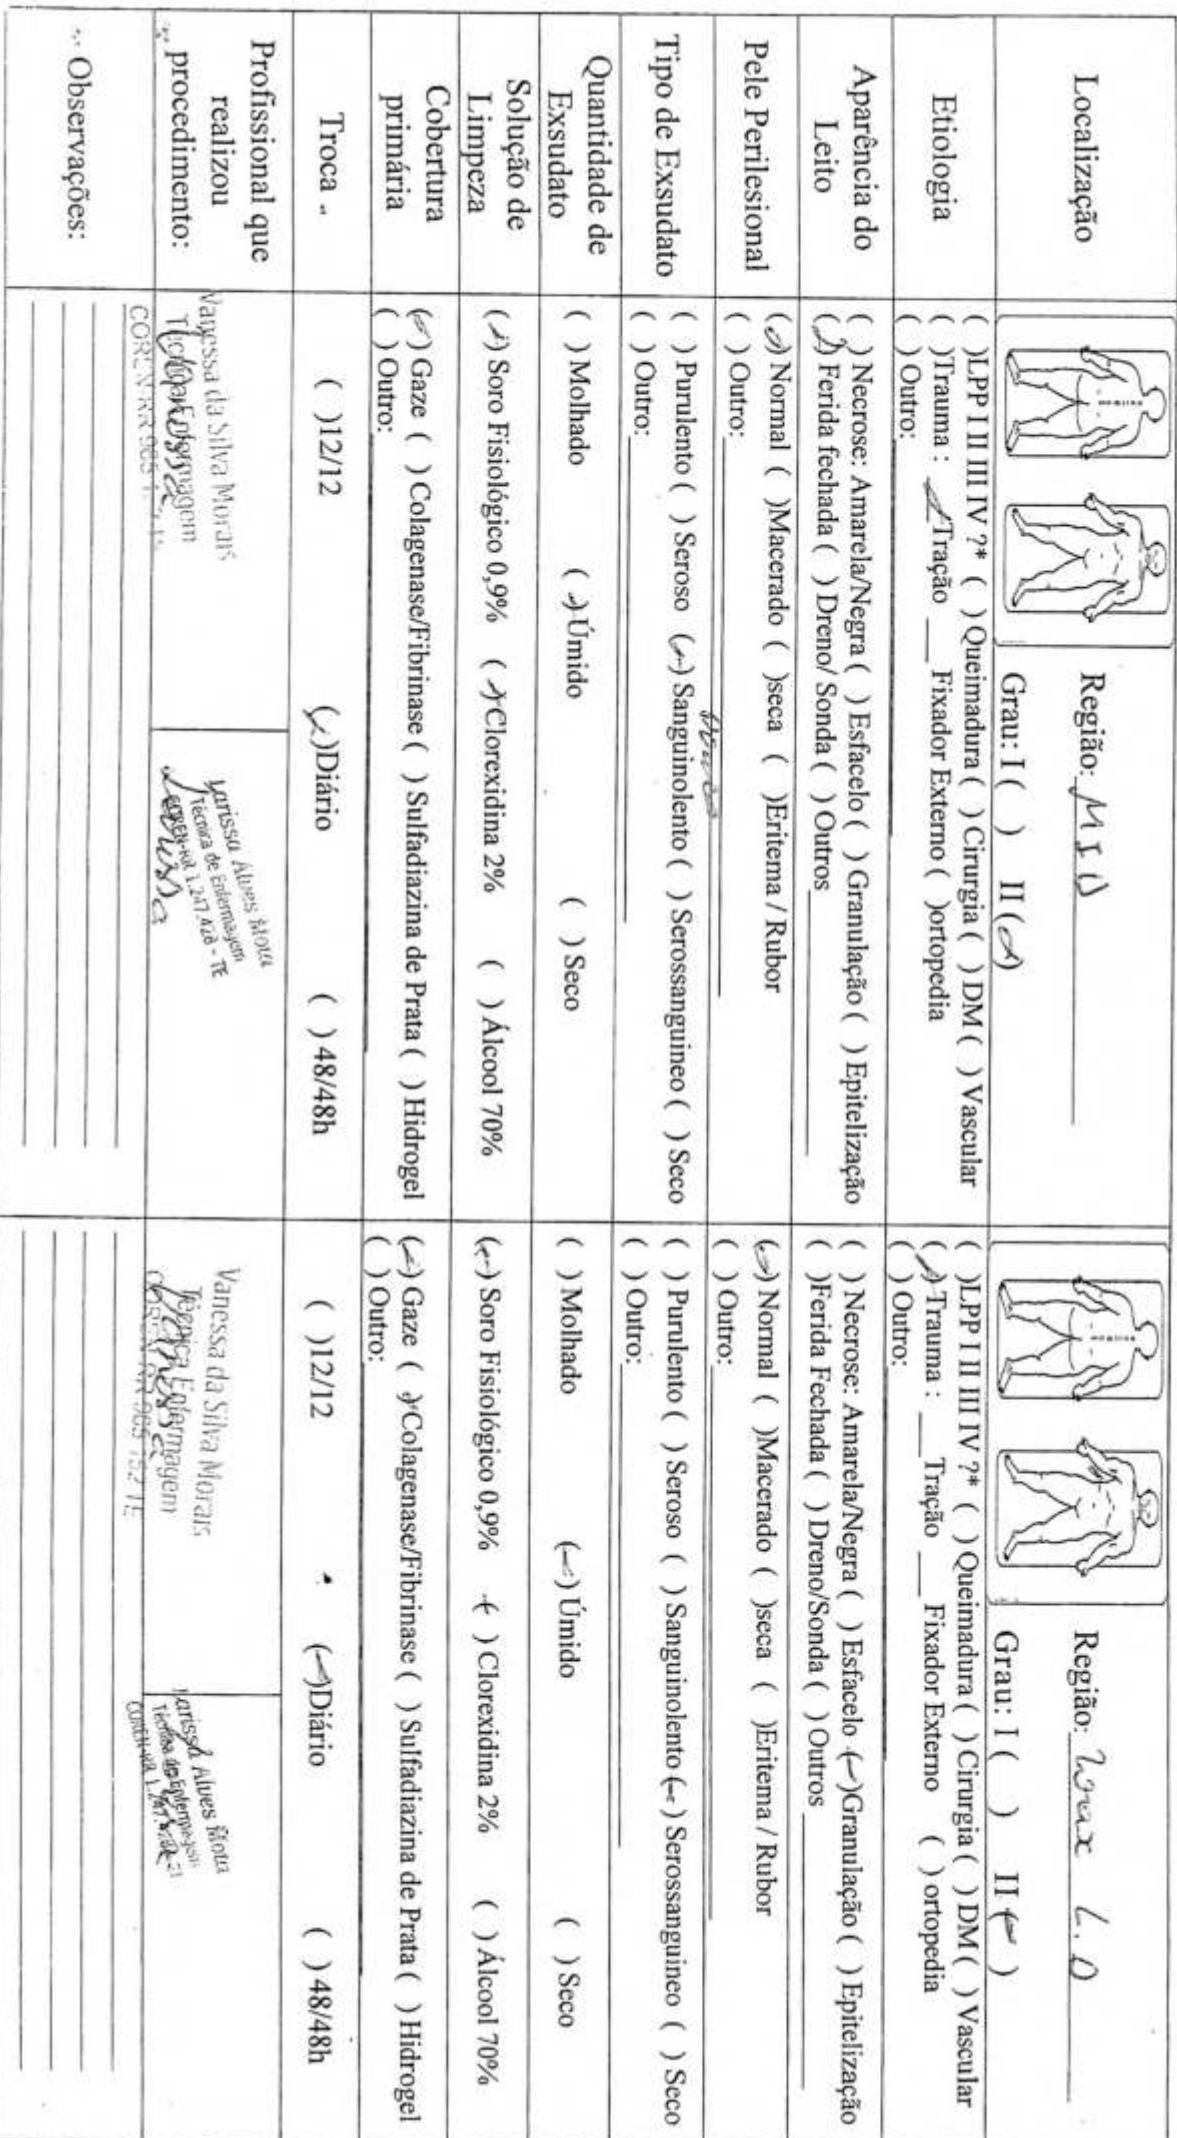 Localização
Região: MID
Grau: I ( ) II (x)
Região: Torax L.D
Grau: I ( ) II (x)
Etiologia
( )LPP I II III IV ?* ( ) Queimadura ( ) Cirurgia ( ) DM ( ) Vascular
( )Trauma : x Tração ___ Fixador Externo ( )ortopedia
( ) Outro:
( )LPP I II III IV ?* ( ) Queimadura ( ) Cirurgia ( ) DM ( ) Vascular
(x) Trauma : ___ Tração ___ Fixador Externo ( ) ortopedia
( ) Outro:
Aparência do
Leito
( ) Necrose: Amarela/Negra ( ) Esfacelo ( ) Granulação ( ) Epitelização
(x) Ferida fechada ( ) Dreno/ Sonda ( ) Outros
( ) Necrose: Amarela/Negra ( ) Esfacelo (x)Granulação ( ) Epitelização
( )Ferida Fechada ( ) Dreno/Sonda ( ) Outros
Pele Perilesional
(x) Normal ( )Macerado ( )seca ( )Eritema / Rubor
( ) Outro:
(x) Normal ( )Macerado ( )seca ( )Eritema / Rubor
( ) Outro:
Tipo de Exsudato
( ) Purulento ( ) Seroso (x) Sanguinolento ( ) Serossanguineo ( ) Seco
( ) Outro:
( ) Purulento ( ) Seroso ( ) Sanguinolento (x) Serossanguineo ( ) Seco
( ) Outro:
Quantidade de
Exsudato
( ) Molhado (x)Úmido ( ) Seco
( ) Molhado (x) Úmido ( ) Seco
Solução de
Limpeza
(x) Soro Fisiológico 0,9% (x)Clorexidina 2% ( ) Álcool 70%
(x) Soro Fisiológico 0,9% ( ) Clorexidina 2% ( ) Álcool 70%
Cobertura
primária
(x) Gaze ( ) Colagenase/Fibrinase ( ) Sulfadiazina de Prata ( ) Hidrogel
( ) Outro:
(x) Gaze (x)Colagenase/Fibrinase ( ) Sulfadiazina de Prata ( ) Hidrogel
( ) Outro:
Troca
( )12/12 (x)Diário ( ) 48/48h
( )12/12 (x)Diário ( ) 48/48h
Profissional que
realizou
procedimento:
Vanessa da Silva Morais
Técnica Enfermagem
COREN-RR 965
Vanessa
Larissa Alves Mota
Técnica de Enfermagem
COREN-RR 1.247.428 - TE
Larissa
Vanessa da Silva Morais
Técnica Enfermagem
COREN-RR 965 152 TE
Vanessa
Larissa Alves Mota
Técnica de Enfermagem
COREN-RR 1.247
Observações: